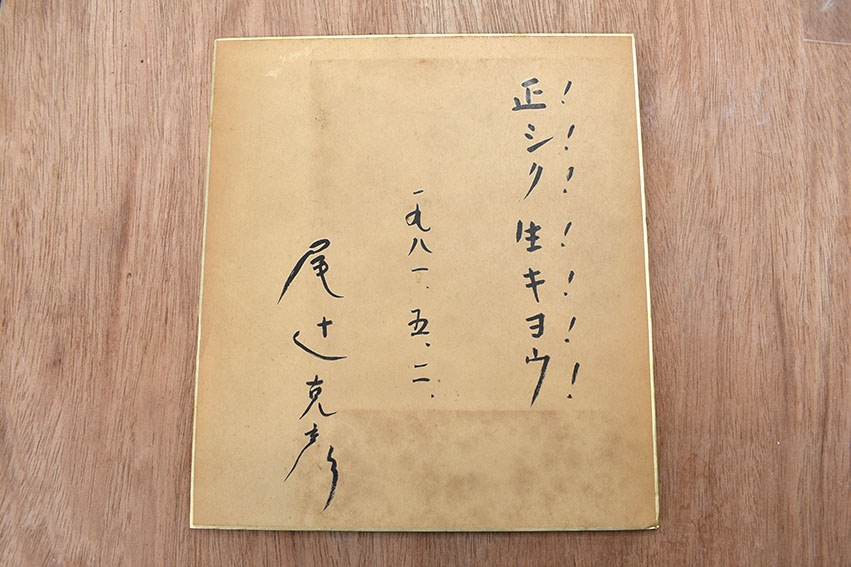 正シク生キヨウ
！！！！！！！
一九八一、五、二、
尾辻克彦